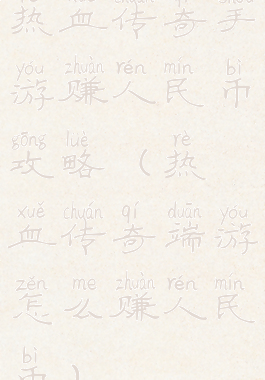 rè xuè chuán qí shǒu
热血传奇手
yóu zhuàn rén mín bì
游赚人民币
gōng lüè rè
攻略（热
xuě chuán qí duān yóu
血传奇端游
zěn me zhuàn rén mín
怎么赚人民
bì
币）